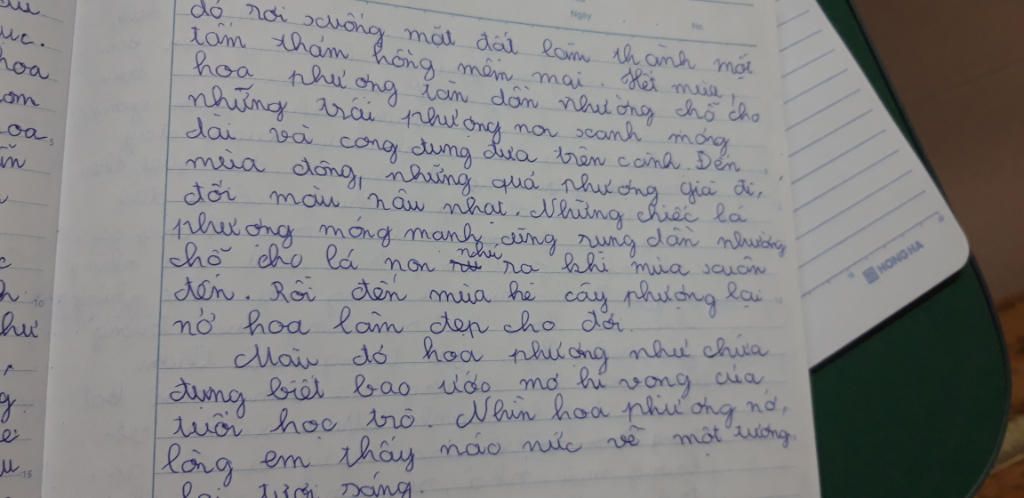 đỏ rơi xuống mặt đất làm thành một
tấm thảm hồng mềm mại. Hết mùa,
hoa phượng tàn dần nhường chỗ cho
những trái phượng non xanh mỏng
dài và cong đung đưa trên cành. Đến
mùa đông, những quả phượng già đi,
đổi màu nâu nhạt. Những chiếc lá
phượng mỏng manh cũng rụng dần nhường
chỗ cho lá non nhú ra khi mùa xuân
đến. Rồi đến mùa hè cây phượng lại
nở hoa làm đẹp cho đời.
Màu đỏ hoa phượng như chứa
đựng biết bao ước mơ hi vọng của
tuổi học trò. Nhìn hoa phượng nở,
lòng em thấy náo nức về một tương
lai tươi sáng.
Ngày
No
HONG HA
uc.
hoa
om
oa,
10
hư
g.
u
15